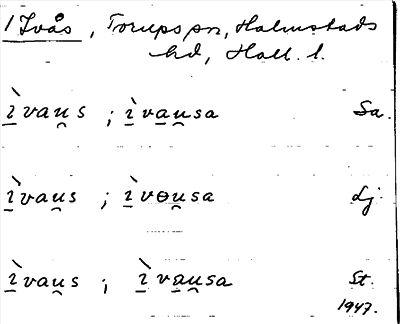 1 Ivås, Torups sn, Halmstads
hd, Hall. l.
ı̲̀vau̯s ; ı̲̀va̲u̯sa Sa.
ı̲̀vau̯s ; ı̲̀vɵu̯sa Lj.
ı̲̀vau̯s ; ı̲̀va̲u̯sa St.
1947.